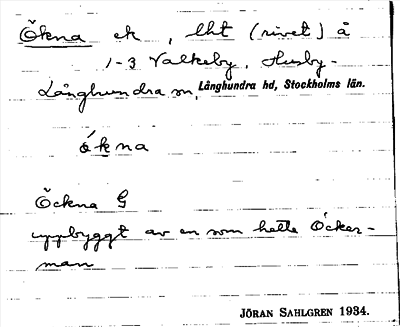 Ökna ek, lht (rivet) å
1-3 Valkeby, Husby-
Långhundra sn, Långhundra hd, Stockholms län.
ókna
Öckna G
uppbyggt av en som hette Öcker-
man
JÖRAN SAHLGREN 1934.